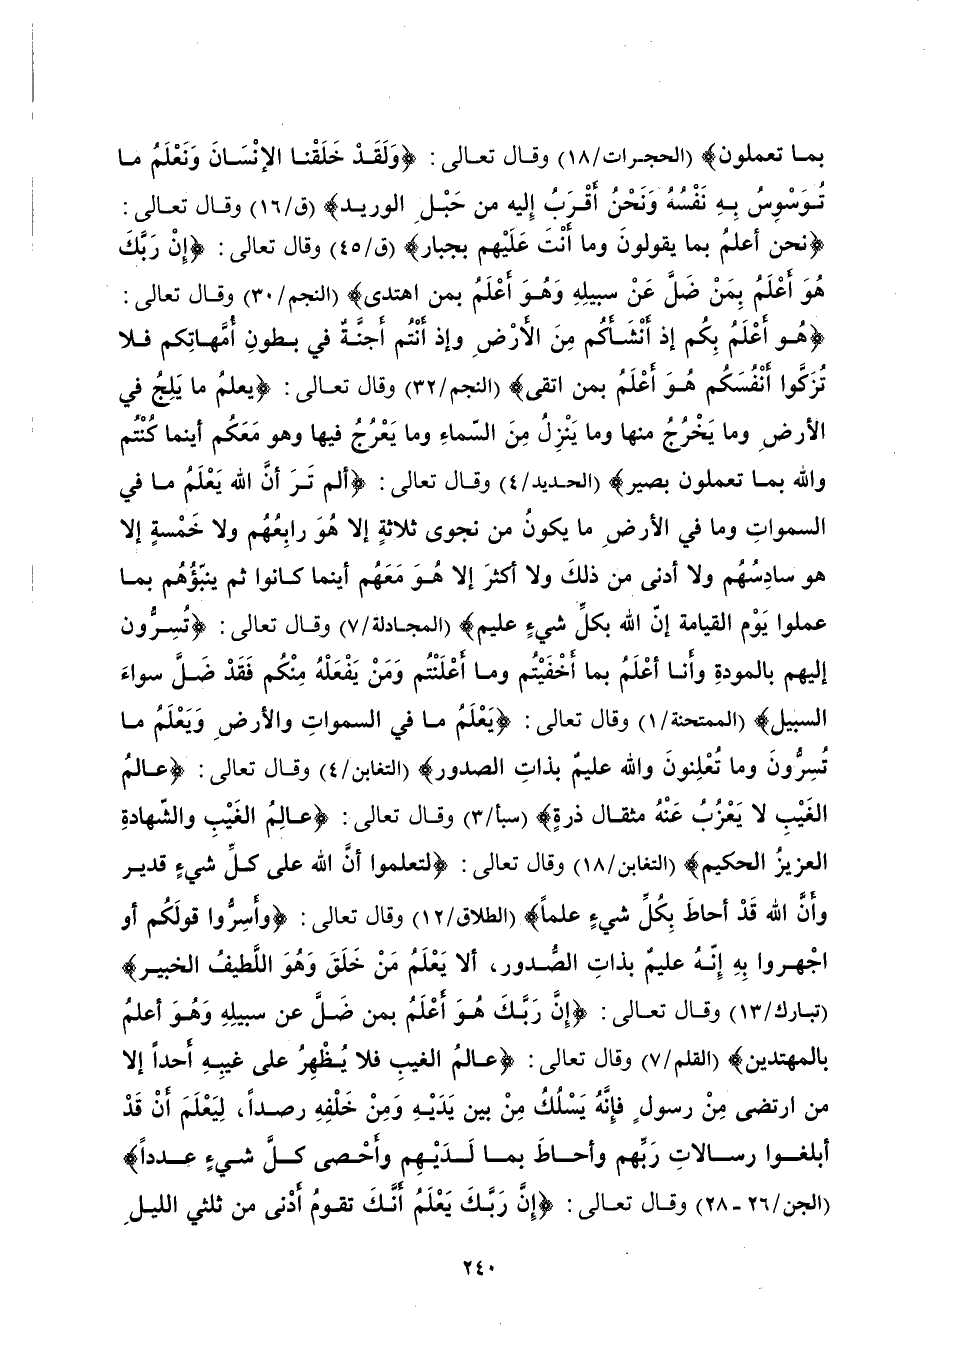 بمـا تعملون﴾ (الحجـرات/١٨) وقـال تعـالى : ﴿وَلَقَـدْ خَلَقْنـا الإنْسَـانَ وَنَعْلَمُ مـا
تُـوَسْوِسُ بِـهِ نَفْسُهُ وَنَحْنُ أَقْرَبُ إليه من حَبْـلِ الوريـد﴾ (ق/١٦) وقـال تعـالى :
﴿نحن أعلمُ بما يقولونَ وما أَنْتَ عَلَيْهم بجبار﴾ (ق/٤٥) وقال تعالى : ﴿إنْ رَبَّكَ
هُوَ أَعْلَمُ بِمَنْ ضَلَّ عَنْ سبيلِهِ وَهُـوَ أَعْلَمُ بمن اهتدى﴾ (النجم/٣٠) وقـال تعالى :
﴿هُـو أَعْلَمُ بِكُم إذ أَنْشَـأَكُم مِنَ الأَرْضِ وإذ أَنْتُم أجنَّـةٌ في بـطونِ أُمَّهـاتِكم فـلا
تُزَكَّوا أَنْفُسَكُم هُـوَ أَعْلَمُ بمن اتقى﴾ (النجم/٣٢) وقال تعـالى : ﴿يعلمُ ما يَلِجُ في
الأرضِ وما يَخْرُجُ منها وما يَنْزِلُ مِنَ السّماءِ وما يَعْرُجُ فيها وهو مَعَكُم أينما كُنْتُم
والله بمـا تعملون بصير﴾ (الحـديد/٤) وقـال تعـالى : ﴿ألم تَـرَ أنَّ الله يَعْلَمُ مـا في
السمواتِ وما في الأرضِ ما يكونُ من نجوى ثلاثةٍ إلا هُوَ رابِعُهُم ولا خَمْسةٍ إلا
هو سادِسُهُم ولا أدنى من ذلكَ ولا أكثرَ إلا هُـوَ مَعَهُم أينما كـانوا ثم ينبّؤُهُم بمـا
عملوا يَوْم القيامة إنّ الله بكلِّ شيءٍ عليم﴾ (المجادلة/٧) وقـال تعالى : ﴿تُسِـرُّون
إليهم بالمودةِ وأنـا أعْلَمُ بما أَخْفَيْتُم ومـا أَعْلَنْتُم وَمَنْ يَفْعَلْهُ مِنْكُم فَقَدْ ضَـلَّ سواءَ
السبيل﴾ (الممتحنة/١) وقال تعالى : ﴿يَعْلَمُ مـا في السمواتِ والأرضِ وَيَعْلَمُ مـا
تُسِرُّونَ وما تُعْلِنونَ والله عليمٌ بذاتِ الصدور﴾ (التغابن/٤) وقـال تعالى : ﴿عـالمُ
الغَيْبِ لا يَعْزُبُ عَنْهُ مثقال ذرةٍ﴾ (سبأ/٣) وقال تعالى : ﴿عالِمُ الغَيْبِ والشّهادةِ
العزيزُ الحكيم﴾ (التغابن/١٨) وقال تعالى : ﴿لتعلموا أنَّ الله على كـلِّ شيءٍ قديـر
وأَنَّ الله قَدْ أحاطَ بِكُلِّ شيءٍ علماً﴾ (الطلاق/١٢) وقال تعالى : ﴿وأَسِرُّوا قولَكُم أو
اجْهـروا بِهِ إنّـهُ عليمٌ بذاتِ الصُّـدور، ألا يَعْلَمُ مَنْ خَلَقَ وَهُوَ اللَّطيفُ الخبيـر﴾
(تبارك/١٣) وقـال تعـالى : ﴿إنَّ رَبَّـكَ هُـوَ أَعْلَمُ بمن ضَـلَّ عن سبيلِهِ وَهُـوَ أعلمُ
بالمهتدين﴾ (القلم/٧) وقال تعالى : ﴿عـالمُ الغيبِ فلا يُـظْهِرُ على غيبِـهِ أحداً إلا
من ارتضى مِنْ رسولٍ فإنَّهُ يَسْلُكُ مِنْ بين يَدَيْـهِ وَمِنْ خَلْفِهِ رصـداً، لِيَعْلَمَ أنْ قَدْ
أبلغـوا رسـالاتِ رَبِّهم وأحـاطَ بمـا لَـدَيْـهِم وأَحْصى كـلَّ شيءٍ عـدداً﴾
(الجن/٢٦ - ٢٨) وقـال تعـالى : ﴿إنَّ رَبَّـكَ يَعْلَمُ أَنَّـكَ تقـومُ أَدْنى من ثلثي الليـلِ
٢٤٠